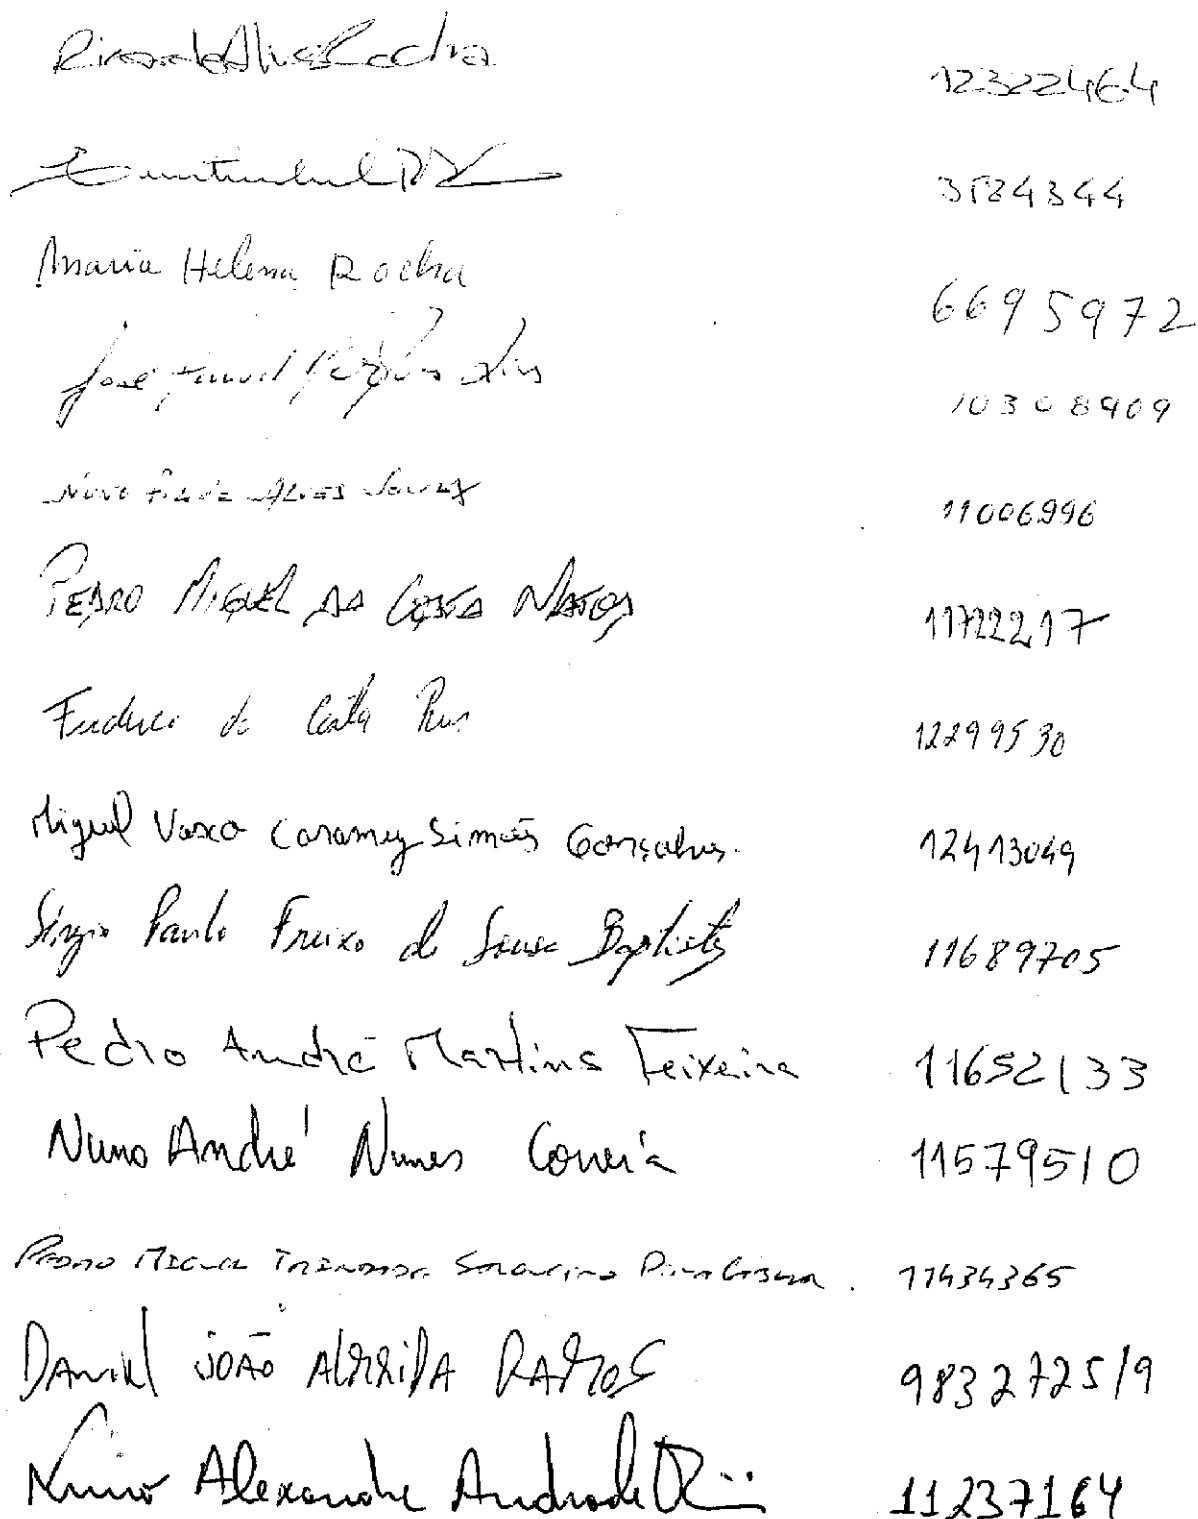 Ricardo Alves Rocha 12322464
3524344
Maria Helena Rocha 6695972
José 10308909
Nuno Alves 11006996
PEDRO MIGUEL DA COSTA MATOS 11722217
da Costa 12299530
Miguel Vasco Simões Gonçalves. 12413049
Sérgio Paulo Freixo de Sousa Baptista 11689705
Pedro André Martins Teixeira 11652133
Nuno André Nunes Correia 11579510
PEDRO MIGUEL TRINDADE 11434365
DANIEL JOÃO ALMEIDA RAMOS 9832725/9
Nuno Alexandre Andrade 11237164